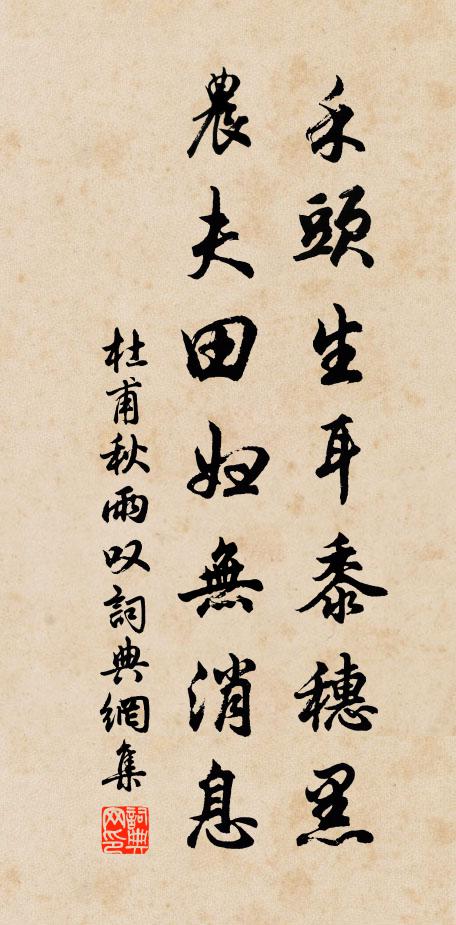 禾頭生耳黍穗黑
農夫田妇無消息
杜甫秋雨叹詞典網集
詞典网印